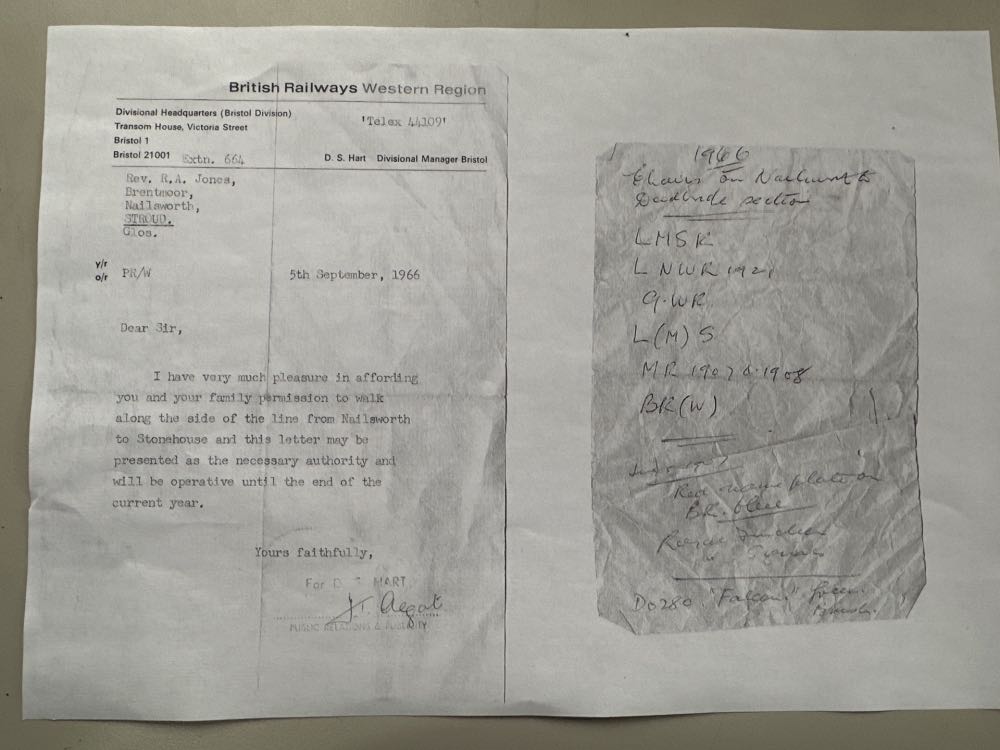 British Railways Western Region
Divisional Headquarters (Bristol Division)
Transom House, Victoria Street
Bristol 1
Bristol 21001 Extn. 664
'Telex 44109'
D. S. Hart Divisional Manager Bristol
Rev. R.A. Jones,
Brentmoor,
Nailsworth,
STROUD.
Glos.
y/r
o/r PR/W
5th September, 1966
Dear Sir,
I have very much pleasure in affording
you and your family permission to walk
along the side of the line from Nailsworth
to Stonehouse and this letter may be
presented as the necessary authority and
will be operative until the end of the
current year.
Yours faithfully,
For D. S. HART
PUBLIC RELATIONS & PUBLICITY
1966
Chairs on to
section
LMSR
LNWR 1921
G.WR
L(M)S
MR 1907 & 1908
BR(W)
Red name plate on
BR. blue
D0280 "Falcon"